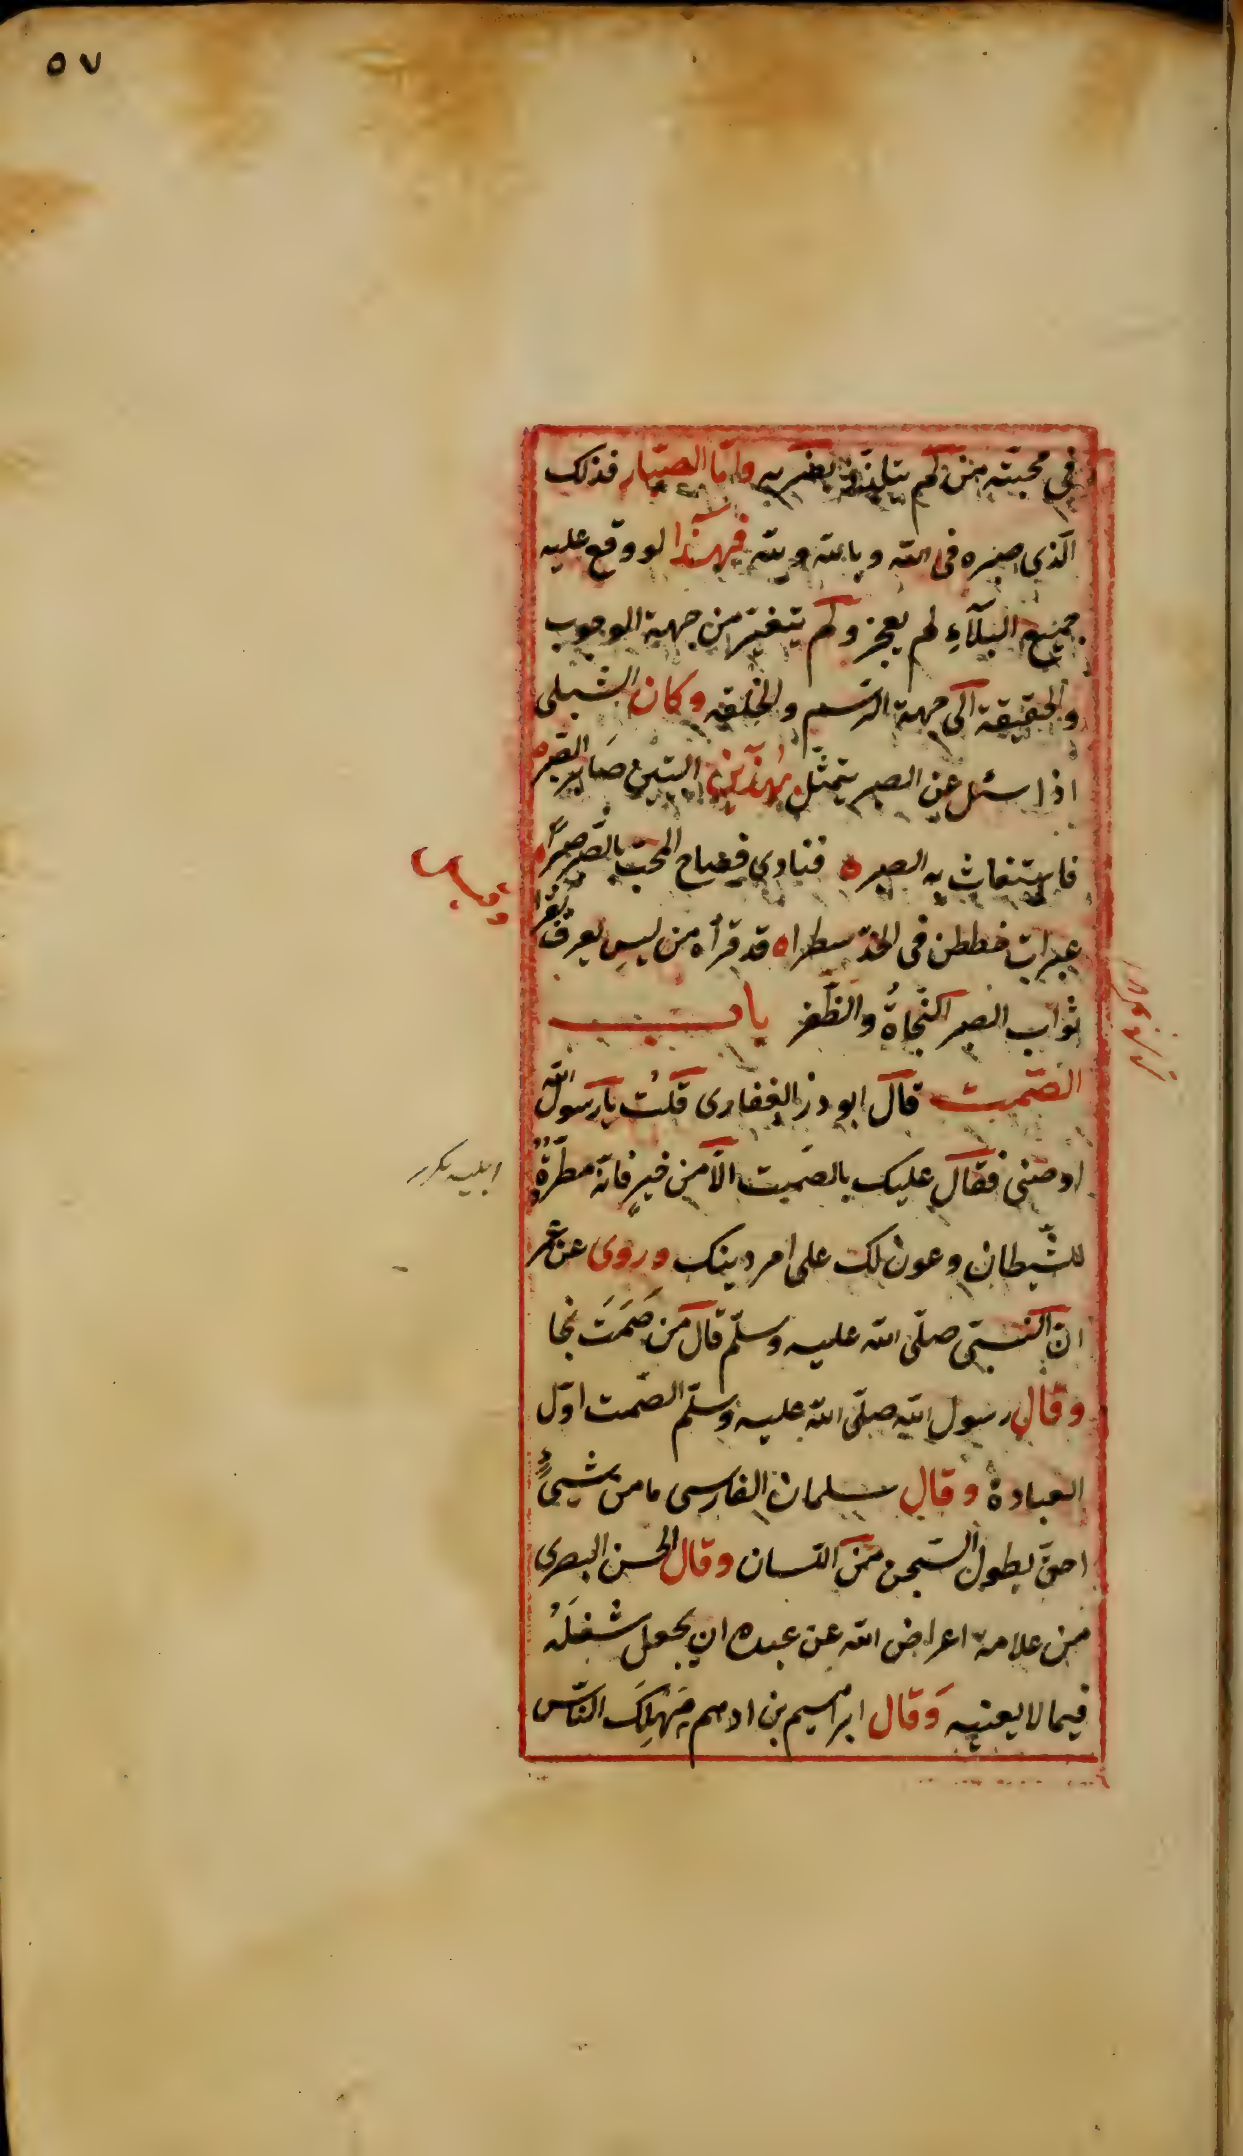 ٥٧
فى محبته من لم يتلذذ بضربه واما الصبار فذلك
الذى صبره فى الله وبالله ولله فهذا لو وقع عليه
جميع البلآء لم يعجز ولم يتغير من جهة الوجوب
والحقيقة الى جهة الرسم والخلقه وكان الشبلى
اذا سئل عن الصبر يتمثل بهذين البيتين صابر الصبر
فاستغاث به الصبره فنادى فصاح المحب بالصبر صبرا
عبرات خططن فى الخد سطراه قد قرأه من ليس يعرف يقرا
ثواب الصبر النجاةُ والظفر باب
الصمت قال ابو ذر الغفارى قلت يا رسول الله
اوصنى فقال عليك بالصمت الا من خير فانه مطردة
للشيطان وعون لك على امر دينك وروى عن عمر
ان النبى صلى الله عليه وسلم قال من صَمَتَ نجا
وقال رسول الله صلى الله عليه وسلم الصمت اول
العبادة وقال سلمان الفارسى ما من شيئ
احق بطول السجن من اللسان وقال الحسن البصرى
من علامة اعراض الله عن عبده ان يجعل شغلَهُ
فيما لا يعنيه وَقال ابراهيم بن ادهم مَهْلِكَ الناس